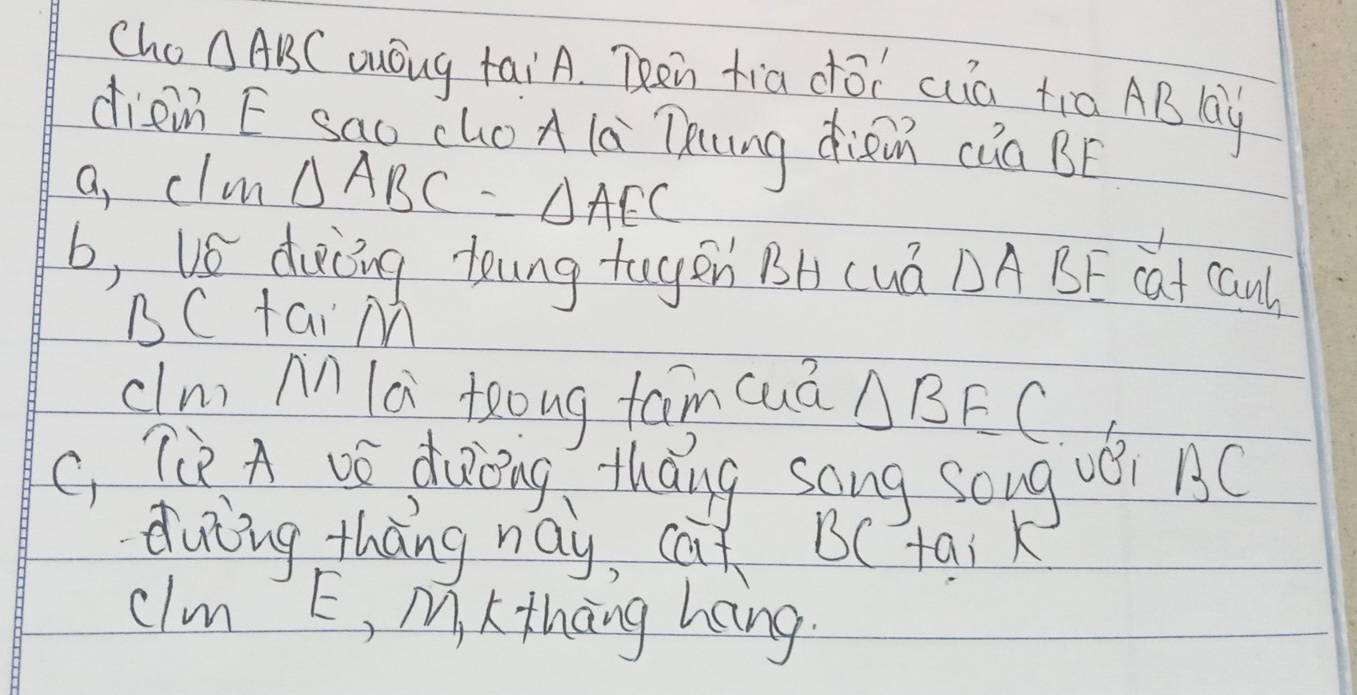 Cho ΔABC vuông tại A. Trên tia đối của tia AB lấy
điểm E sao cho A là Trung điểm của BE
a, c/m ΔABC = ΔAEC
b, Vẽ đường trung tuyến BH cuả ΔABE cắt cạnh
BC tại M
c/m M là trọng tâm cuả ΔBEC.
c, Từ A vẽ đường thẳng song song với BC
đường thẳng này, cắt BC tại K
c/m E, M, K thẳng hàng.